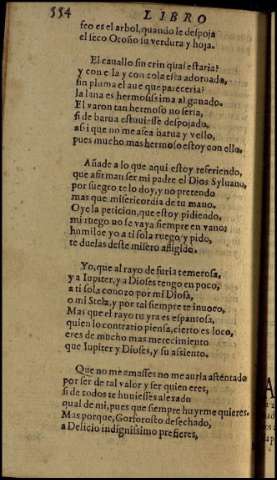 554 LIBRO
feo es el arbol, quando le despoja
el seco Otoño su verdura y hoja.
El cauallo sin crin qual estaria?
y con ella y con cola esta adornado,
sin pluma el aue que pareceria?
la lana es hermosissima al ganado.
El varon tan hermoso no seria,
si de barua estuuiesse despojado,
assi que no me afea barua y vello,
pues mucho mas hermoso estoy con ello.
Añade a lo que aqui estoy refiriendo,
que afirman ser mi padre el Dios Syluano,
por suegro te lo doy, y no pretendo
mas que misericordia de tu mano.
Oye la peticion, que estoy pidiendo,
mi ruego no se vaya siempre en vano:
humilde yo a ti sola ruego y pido,
te duelas deste misero afligido.
Yo, que al rayo de furia temerosa,
y a Iupiter, y a Dioses tengo en poco,
a ti sola conozco por mi Diosa,
o mi Stela, y por tal siempre te inuoco,
Mas que el rayo tu yra es espantosa,
quien lo contrario piensa, cierto es loco,
eres de mucho mas merecimiento
que Iupiter y Dioses, y su assiento.
Que no me amasses no me auria afrentado
por ser de tal valor y ser quien eres,
si de todos te huuiesses alexado
qual de mi, pues que siempre huyrme quieres.
Mas porque, Gorforosto desechado,
a Delicio indignissimo prefieres,